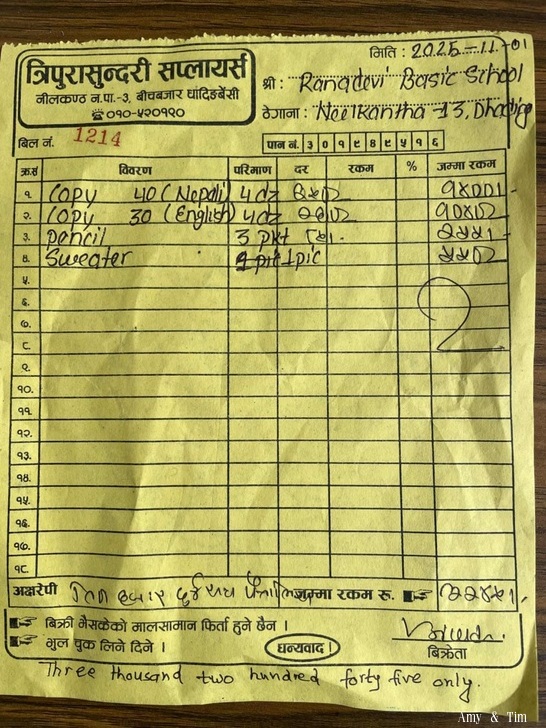 मिति : 2025-11-01
त्रिपुरासुन्दरी सप्लायर्स
नीलकण्ठ न.पा.-३, बीचबजार धादिङबेंसी
☎ ०१०-५२०१२०
श्री : Ranadevi Basic School
ठेगाना : Neelkantha 13, Dhading
बिल नं. 1214
पान नं.
क्र.सं विवरण परिमाण दर रकम % जम्मा रकम
१. Copy 40 (Nepali) 4 dz ३५०।- १४००।-
२. Copy 30 (English) 4 dz २६०।- १०४०।-
३. pencil 3 pkt ८५।- २५५।-
४. Sweater 1 pic ५५०।-
५.
६.
७.
८.
९.
१०.
११.
१२.
१३.
१४.
१५.
१६.
१७.
१८.
अक्षरेपी तिन हजार दुई सय पैतालिस जम्मा रकम रु. ३२४५।-
बिक्री भैसकेको मालसामान फिर्ता हुने छैन ।
भुल चुक लिने दिने । धन्यवाद ! बिक्रेता
Three thousand two hundred forty five only.
Amy & Tim